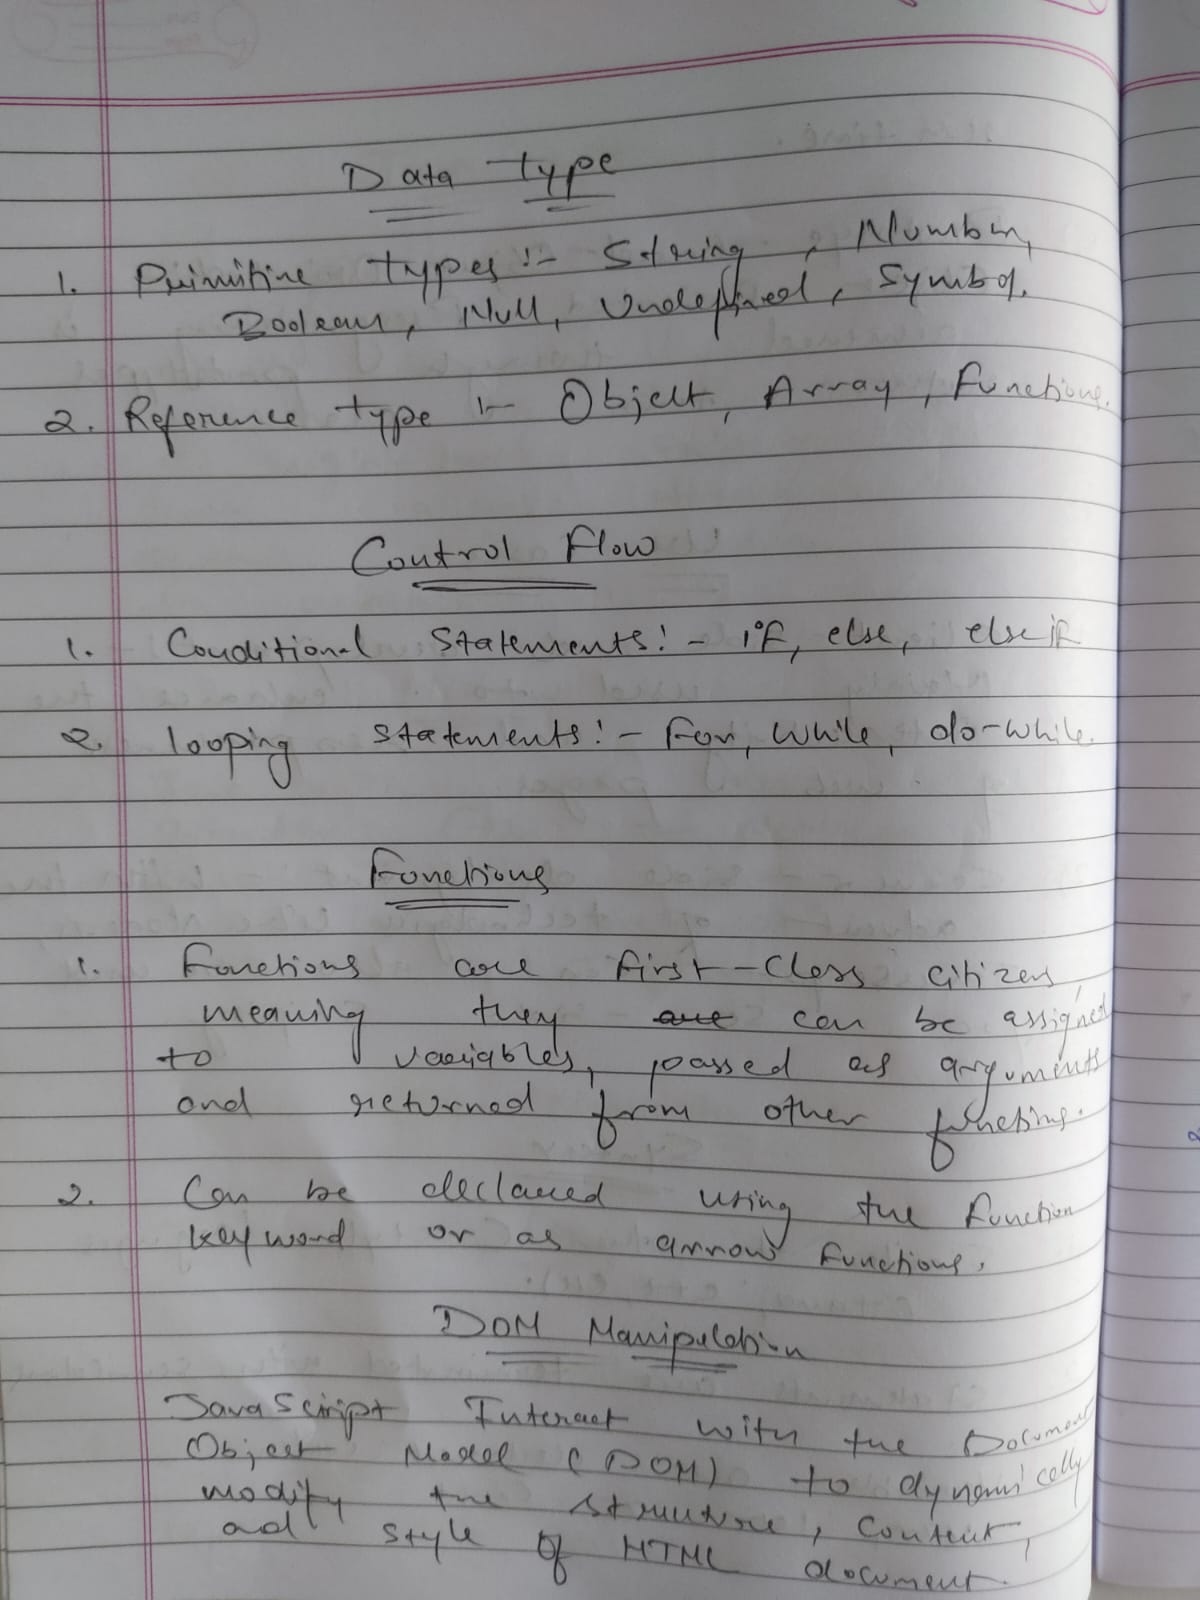 Data type
1. Primitive types :- String, Number,
Boolean, Null, Undefined, Symbol.
2. Reference type :- Object, Array, Functions.
Control Flow
1. Conditional Statements :- if, else, else if
2. looping statements :- For, while, do-while.
Functions
1. Functions are first-class citizens,
meaning they are can be assigned
to variables, passed as arguments
and returned from other functions.
2. Can be declared using the function
keyword or as arrow functions.
DOM Manipulation
JavaScript Interact with the Document
Object Model (DOM) to dynamically
modify the structure, content,
and style of HTML document.